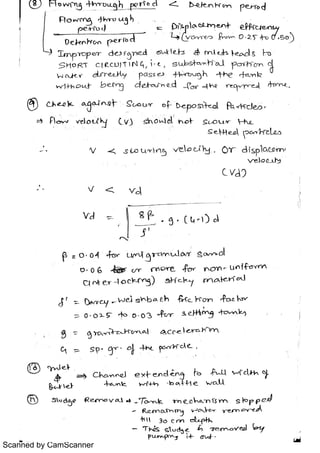 ⑧ Flowing through period < Detention period
Flowing through period / Detention period = Displacement efficiency
↳ (varies from 0.25 to 0.50)
↳ Improper designed outlets & inlets leads to
SHORT CIRCUITING, i.e., substantial portion of
water directly passes through the tank
without being detained for the required time.
⑨ Check against Scour of Deposited Particles.
⇒ Flow velocity (V) should not scour the
settled particles
∴ V < scouring velocity. or displacement
velocity
(Vd)
∴ V < Vd
Vd = √ 8β/f' . g . (G-1) d
β = 0.04 for unigranular sand
0.06 or more for non-uniform
(interlocking) sticky material
f' = Darcy-Weisbach friction factor
= 0.025 to 0.03 for settling tanks
g = gravitational acceleration
G = sp. gr. of the particle.
⑩ Inlet & outlet ⇒ Channel extending to full width of
tank with baffle wall
⑪ Sludge Removal → Tank mechanism stopped
- Remaining water removed
till 30 cm depth
- This sludge is removed by
pumping it out.
Scanned by CamScanner